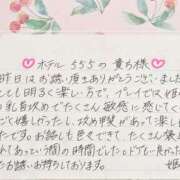 ホテル555の貴方様
昨日はお誘い頂きありがとうございました
とても明るく楽しい方で、プレイでは
乳首攻めでたくさん敏感に感じてく
とても嬉しかったし、攻め甲斐があって
たです。お話しも色々できて、たくさん
あっという間の時間でした
お誘いお待ちしております。